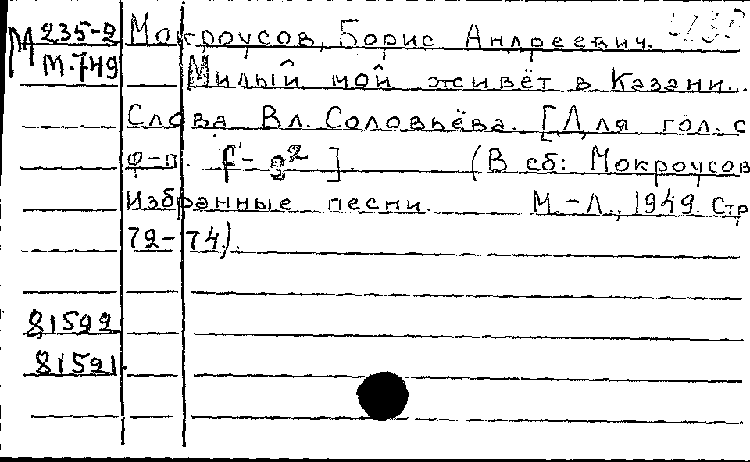 М 235-2 Мокроусов, Борис Андреевич.
М-749 Милый мой живёт в Казани...
Слова Вл. Соловьёва. [Для гол. с
ф-п. f'-g² ] (В сб: Мокроусов
Избранные песни. М.-Л., 1949 Стр
72-74).
81522
81521